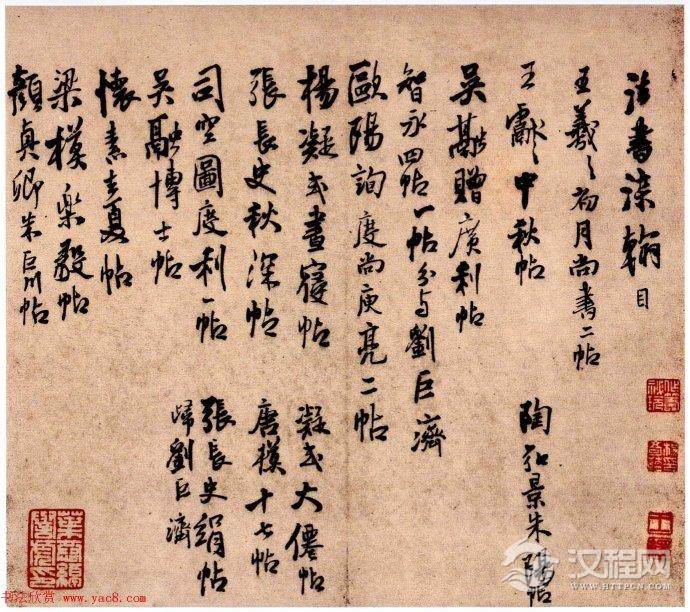 法書染翰目
王羲之初月尚書二帖
王獻之中秋帖
陶弘景朱陽帖
吳融贈廣利帖
智永四帖一帖分與劉巨濟
歐陽詢度尚庾亮二帖
楊凝式晝寢帖
凝式大僊帖
張長史秋深帖
唐模十七帖
司空圖度利一帖
張長史絹帖
歸劉巨濟
吳融博士帖
懷素去夏帖
梁模樂毅帖
顏真卿朱巨川帖
书法欣赏 www.yac8.com
汉程网
WWW.HTTPCN.COM